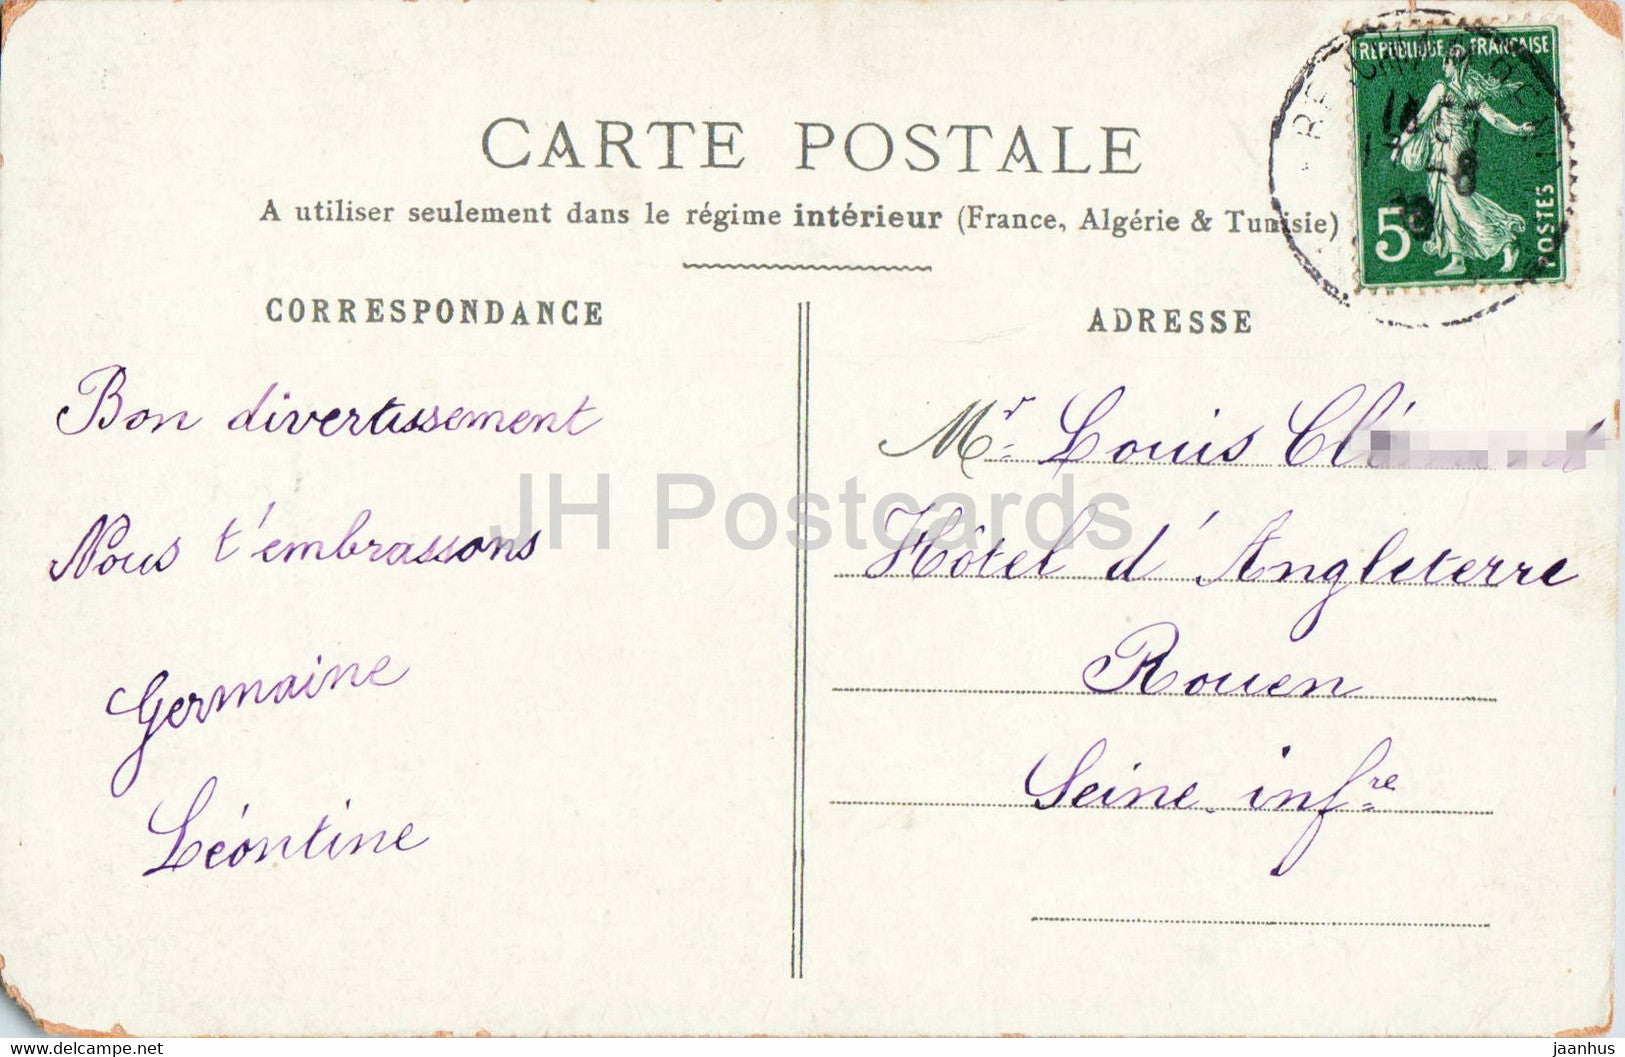 CARTE POSTALE
A utiliser seulement dans le régime intérieur (France, Algérie & Tunisie)
RÉPUBLIQUE FRANÇAISE
5
POSTES
CORRESPONDANCE
Bon divertissement
Nous t'embrassons
Germaine
Léontine
ADRESSE
Mr Louis
Hôtel d'Angleterre
Rouen
Seine infre
JH Postcards
www.delcampe.net
jaanhus